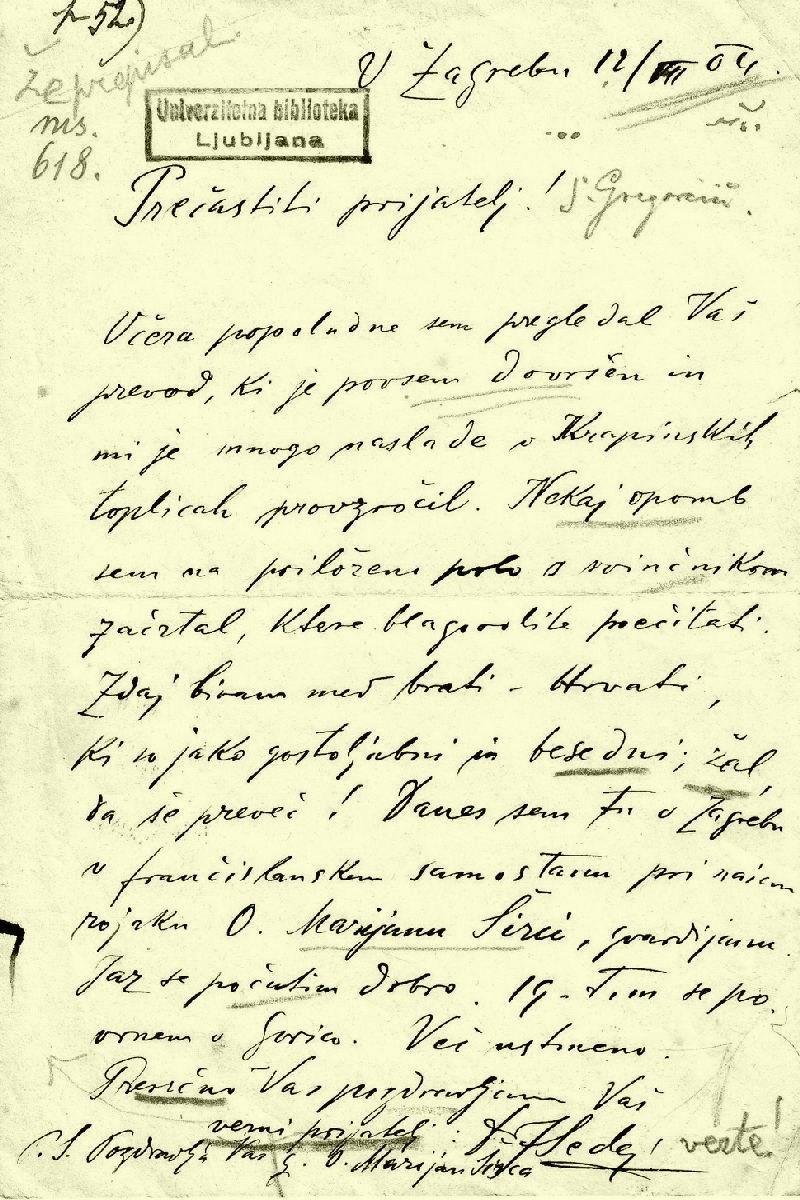 V Zagrebu 12/VIII 04.
Že prepisal
ms.
618.
Univerzitetna biblioteka
Ljubljana
Prečastiti prijatelj! S. Gregorčič.
Včera popoludne sem pregledal Vaš
prevod, ki je povsem dovršen in
mi je mnogo naslade v Krapinskih
toplicah provzročil. Nekaj opomb
sem na priloženi polo s svinčnikom
začrtal, ktere blagovolite prečitati.
Zdaj bivam med brati - Hrvati,
ki so jako gostoljubni in besedni; žal,
da še preveč! Danes sem tu v Zagrebu
v frančiškanskem samostanu pri našem
rojaku O. Marijanu Širci, gvardijanu.
Jaz se počutim dobro. 19. t. m. se po-
vrnem v Gorico. Več ustmeno.
Presrčno Vas pozdravljam Vaš
verni prijatelj: Dr. F. Sedej
P. S. Pozdravlja Vas O. Marijan Širca
verte!